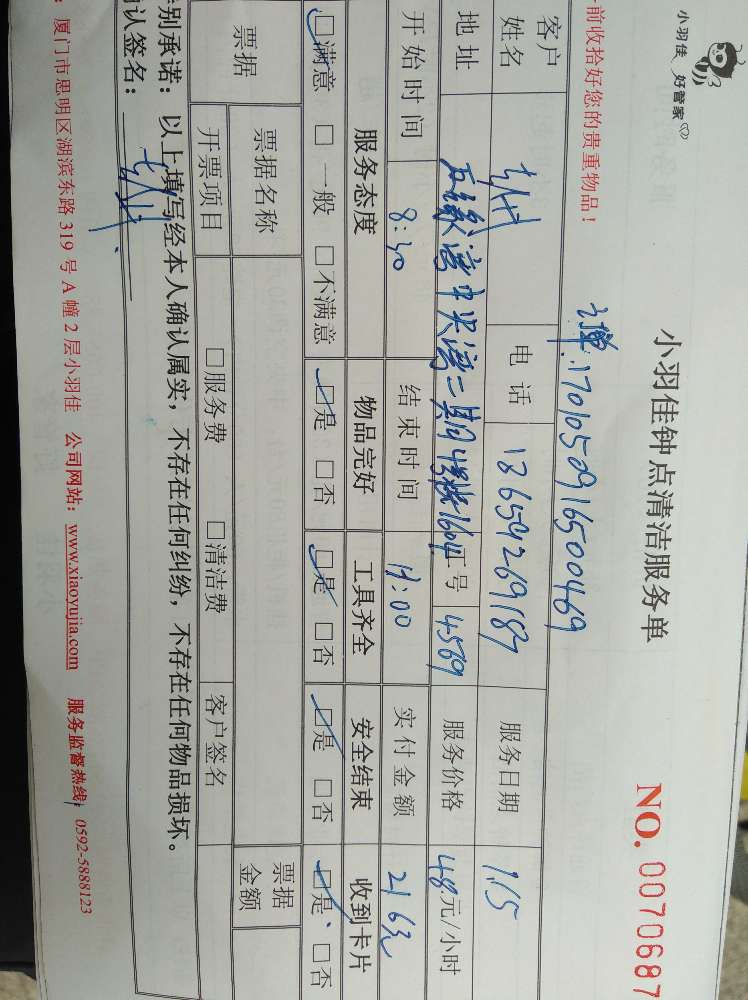 小羽佳 好管家
小羽佳钟点清洁服务单
NO. 0070687
前收拾好您的贵重物品！
1701050916500469
客户姓名 电话 13659269187 服务日期 1.15
地址 五缘湾中央湾二期4号楼1604 工号 4569 服务价格 48元/小时
开始时间 8:30 结束时间 11:00 实付金额 216元
服务态度 物品完好 工具齐全 安全结束 收到卡片
☑满意 □一般 □不满意 ☑是 □否 ☑是 □否 ☑是 □否 ☑是 □否
票据 票据名称 票据金额
开票项目 □服务费 □清洁费 客户签名
别承诺：以上填写经本人确认属实，不存在任何纠纷，不存在任何物品损坏。
认签名：
：厦门市思明区湖滨东路 319 号 A 幢 2 层小羽佳 公司网站：www.xiaoyujia.com 服务监督热线：0592-5888123